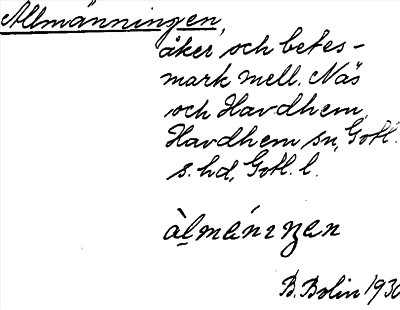 Allmänningen,
åker och betes-
mark mell. Näs
och Havdhem,
Havdhem sn, Gotl.
s. hd, Gotl. l.
àlmániŋen
B. Bolin 1930